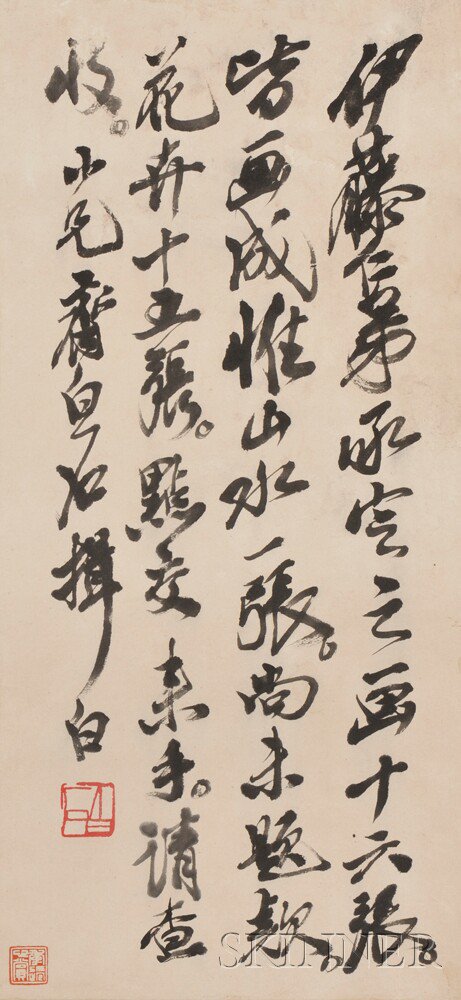 伊藤仁弟承定之画十六張。
皆画成惟山水一張。尚未題款。
花卉十五張。點交来手。請查
收。小兄齊白石揖白
SKINNER